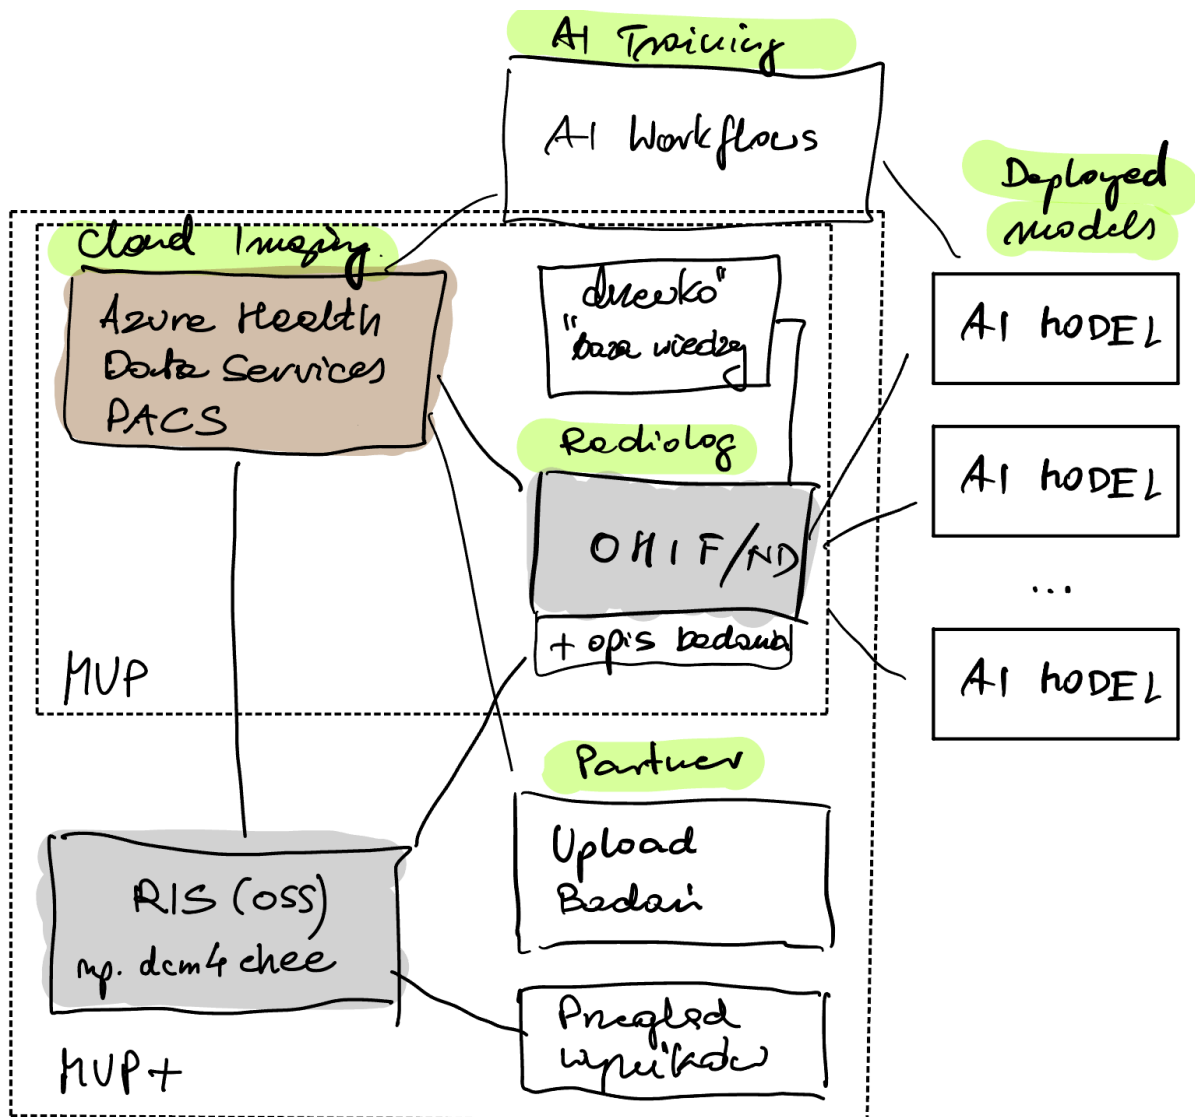 AI Training
AI Workflows
Deployed
models
Cloud Imaging
Azure Health
Data Services
PACS
"drzewko"
"baza wiedzy
AI MODEL
Radiolog
OHIF/ND
+ opis badania
AI MODEL
...
AI MODEL
MVP
Partner
Upload
Badań
RIS (OSS)
np. dcm4chee
Przegląd
wyników
MVP+